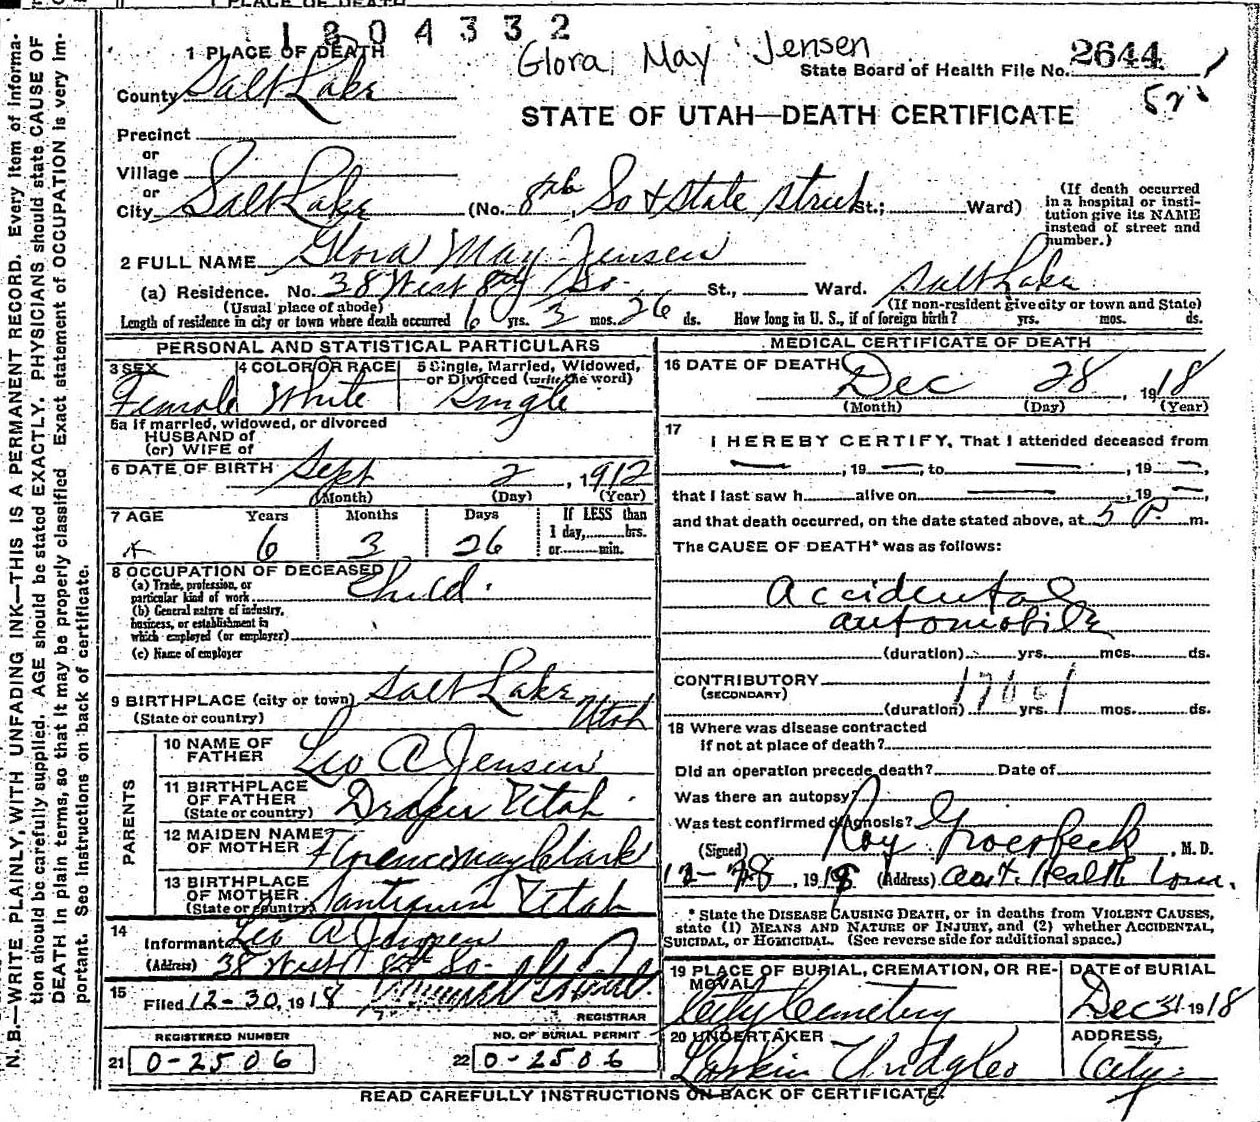 1 PLACE OF DEATH
1804332
Glora May Jensen
State Board of Health File No. 2644
County Salt Lake
STATE OF UTAH—DEATH CERTIFICATE
Precinct
or
Village
or
City Salt Lake (No. 8th So & State Street St.; Ward)
(If death occurred in a hospital or insti-
tution give its NAME
instead of street and
number.)
2 FULL NAME Glora May Jensen
(a) Residence. No. 38 West 8th So. St., Ward. Salt Lake
(Usual place of abode) (If non-resident give city or town and State)
Length of residence in city or town where death occurred 6 yrs. 3 mos. 26 ds. How long in U. S., if of foreign birth? yrs. mos. ds.
PERSONAL AND STATISTICAL PARTICULARS
3 SEX Female
4 COLOR OR RACE White
5 Single, Married, Widowed, or Divorced (write the word) Single
5a If married, widowed, or divorced
HUSBAND of
(or) WIFE of
6 DATE OF BIRTH Sept 2, 1912
(Month) (Day) (Year)
7 AGE Years Months Days If LESS than
1 day, hrs.
or min.
6 3 26
8 OCCUPATION OF DECEASED
(a) Trade, profession, or
particular kind of work Child.
(b) General nature of industry,
business, or establishment in
which employed (or employer)
(c) Name of employer
9 BIRTHPLACE (city or town) Salt Lake
(State or country) Utah
PARENTS
10 NAME OF FATHER Leo A Jensen
11 BIRTHPLACE OF FATHER (State or country) Draper Utah
12 MAIDEN NAME OF MOTHER Florence May Clark
13 BIRTHPLACE OF MOTHER (State or country) Santaquin Utah
14
Informant Leo A Jensen
(Address) 38 West 8th So.
15
Filed 12-30, 1918
REGISTRAR
REGISTERED NUMBER NO. OF BURIAL PERMIT
21 0-2506 22 0-2506
MEDICAL CERTIFICATE OF DEATH
16 DATE OF DEATH Dec 28, 1918
(Month) (Day) (Year)
17
I HEREBY CERTIFY, That I attended deceased from
— , 19 — , to — , 19 — ,
that I last saw h alive on — , 19 — ,
and that death occurred, on the date stated above, at 5 P. m.
The CAUSE OF DEATH* was as follows:
Accidental
automobile
(duration) yrs. mos. ds.
CONTRIBUTORY
(SECONDARY)
(duration) yrs. mos. ds.
18 Where was disease contracted
if not at place of death?
Did an operation precede death? Date of
Was there an autopsy?
Was test confirmed diagnosis?
(Signed) Roy Groesbeck, M. D.
12-28, 1918 (Address) Health Com.
* State the DISEASE CAUSING DEATH, or in deaths from VIOLENT CAUSES,
state (1) MEANS AND NATURE OF INJURY, and (2) whether ACCIDENTAL,
SUICIDAL, or HOMICIDAL. (See reverse side for additional space.)
19 PLACE OF BURIAL, CREMATION, OR RE-
MOVAL
City Cemetery
DATE of BURIAL
Dec 31 1918
20 UNDERTAKER
Larkin
ADDRESS,
City
READ CAREFULLY INSTRUCTIONS ON BACK OF CERTIFICATE.
N. B.—WRITE PLAINLY, WITH UNFADING INK—THIS IS A PERMANENT RECORD. Every item of informa-
tion should be carefully supplied. AGE should be stated EXACTLY. PHYSICIANS should state CAUSE OF
DEATH in plain terms, so that it may be properly classified. Exact statement of OCCUPATION is very im-
portant. See instructions on back of certificate.